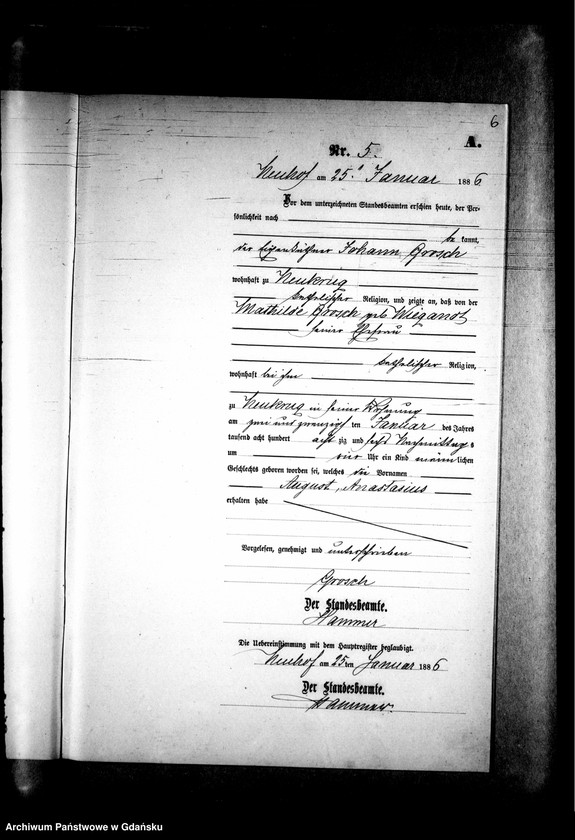 6
A.
Nr. 5.
Neuhof am 25. Januar 1886
Vor dem unterzeichneten Standesbeamten erschien heute, der Per-
sönlichkeit nach
be kannt,
der Eigenthümer Johann Grosch
wohnhaft zu Neukrug
katholischer Religion, und zeigte an, daß von der
Mathilde Grosch geb Wiegandt
seiner Ehefrau
katholischer Religion,
wohnhaft bei ihm
zu Neukrug in seiner Wohnung
am zwei und zwanzigsten Januar des Jahres
tausend acht hundert acht zig und sechs Nachmittags
um vier Uhr ein Kind männlichen
Geschlechts geboren worden sei, welches die Vornamen
August, Anastasius
erhalten habe
Vorgelesen, genehmigt und unterschrieben
Grosch
Der Standesbeamte.
Hammer
Die Uebereinstimmung mit dem Hauptregister beglaubigt.
Neuhof am 25 ten Januar 1886
Der Standesbeamte.
Hammer.
Archiwum Państwowe w Gdańsku